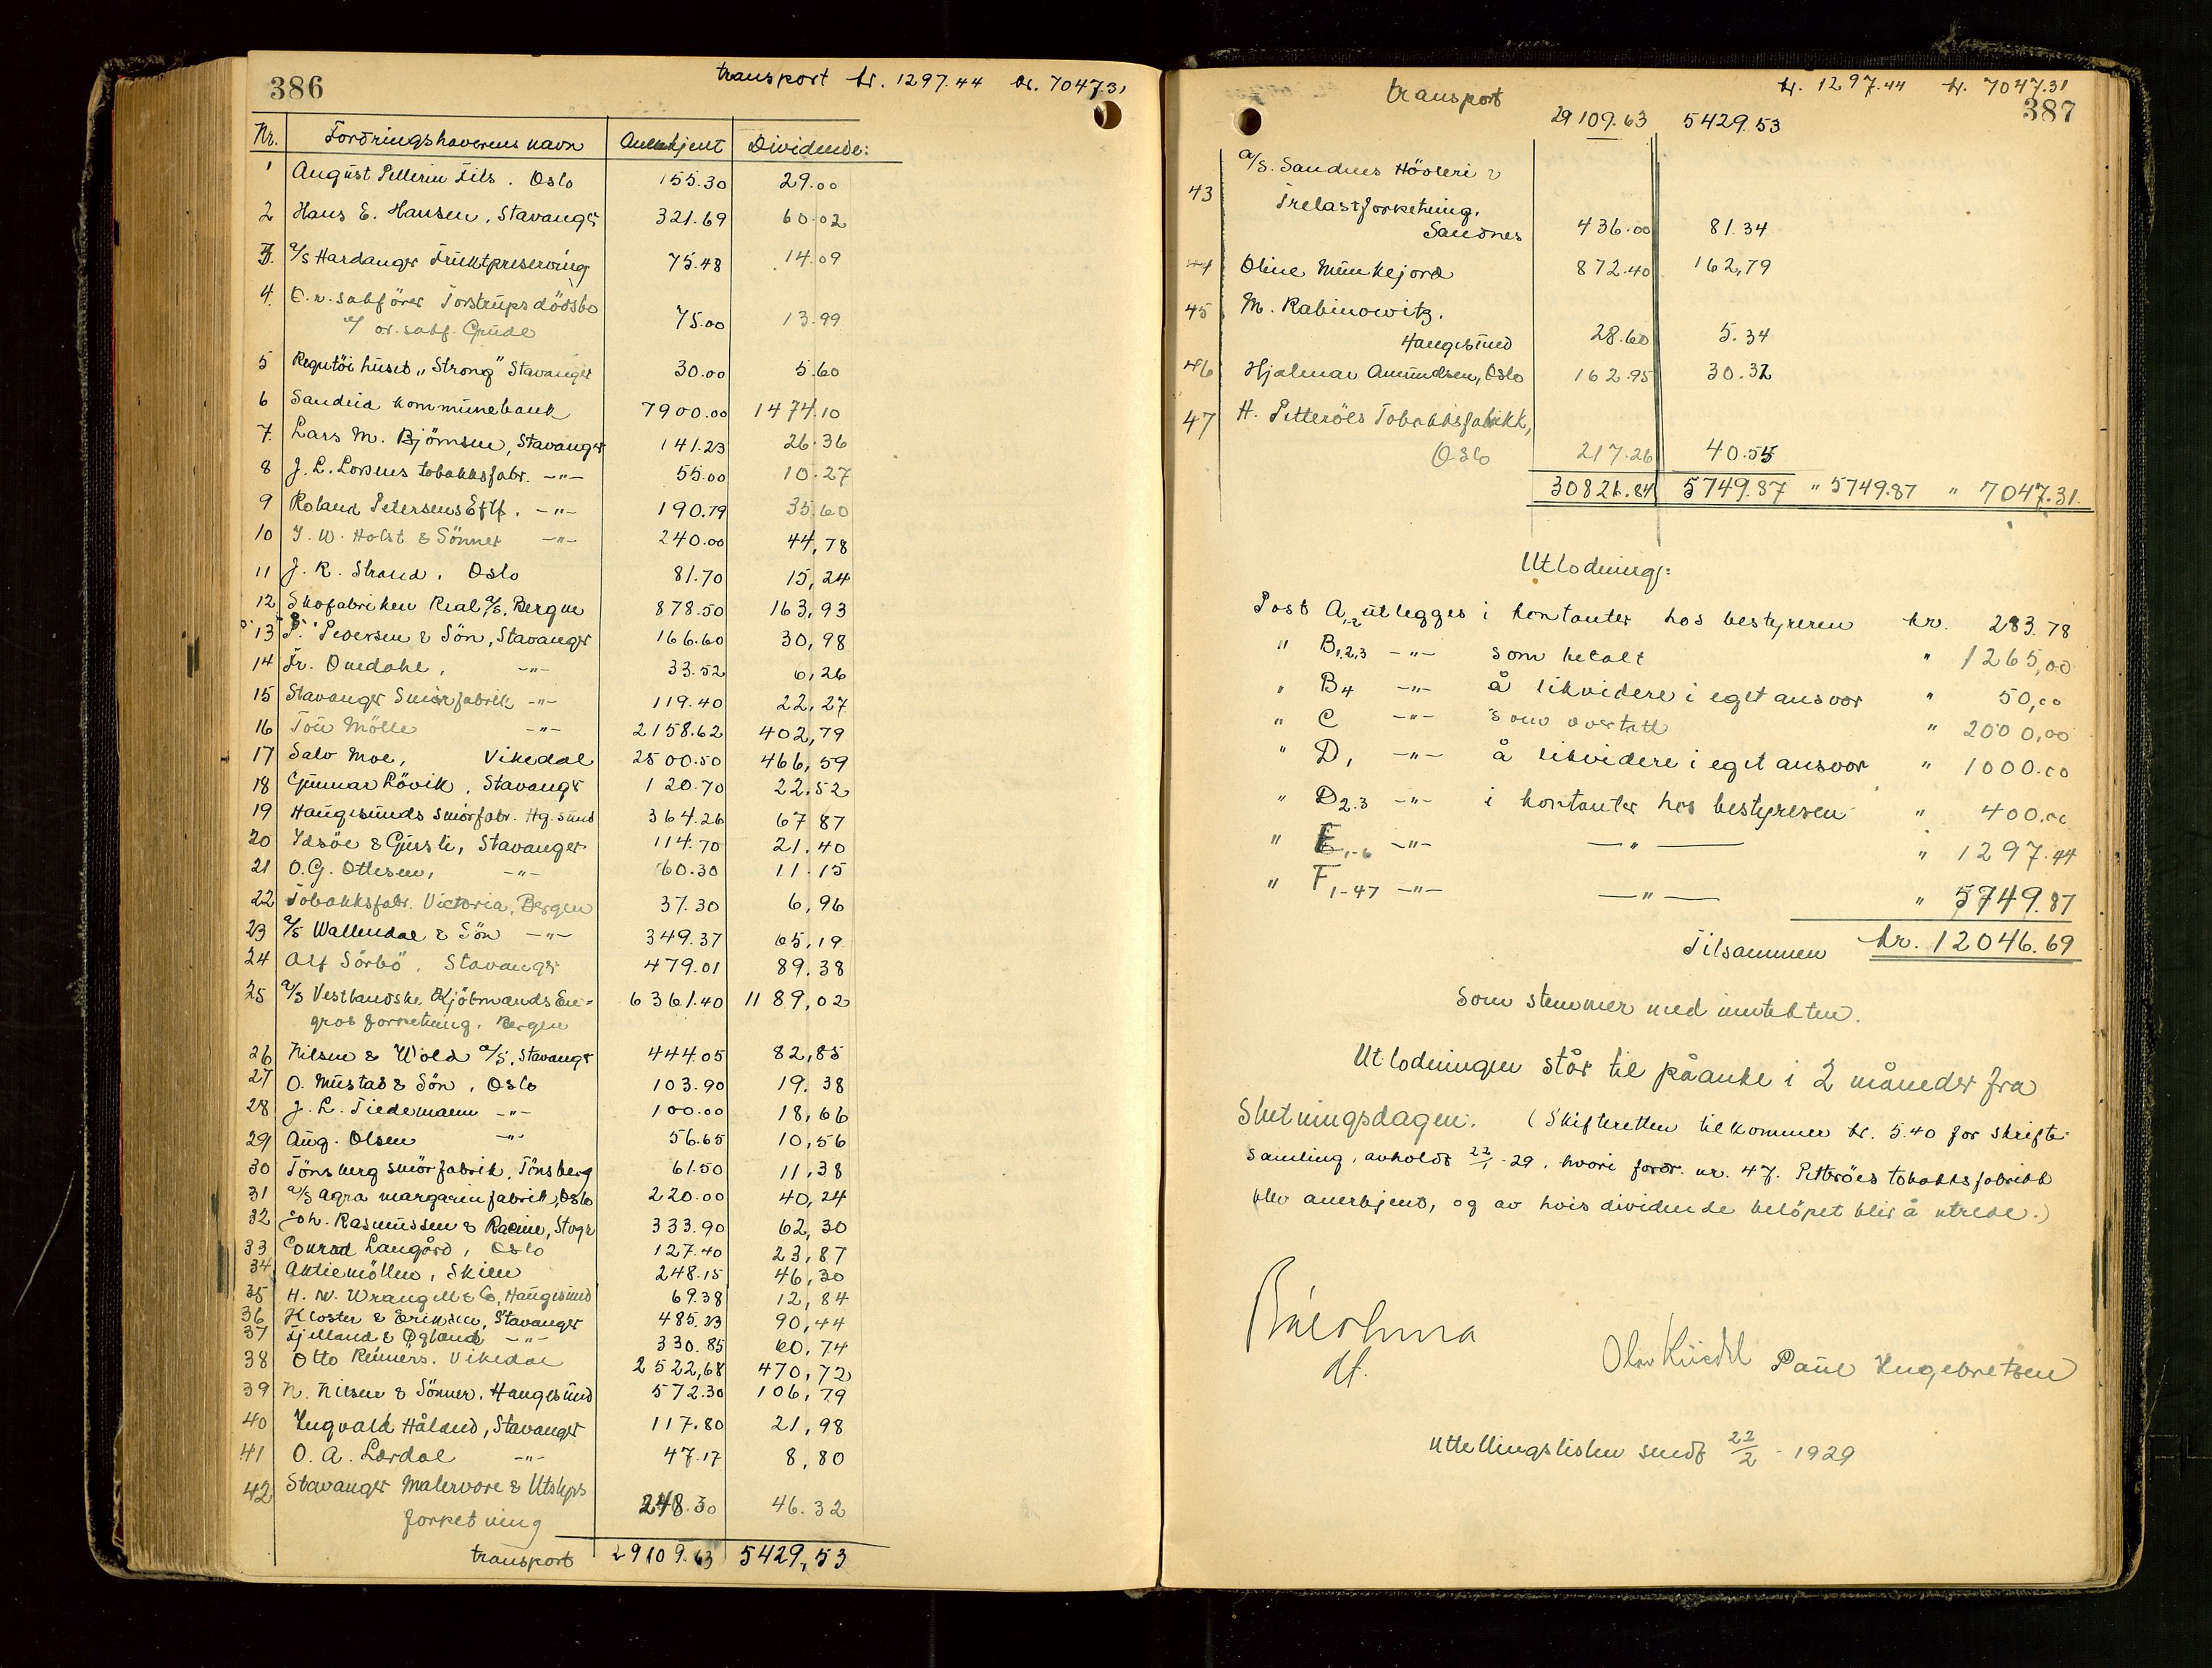 386
transport kr. 1297.44 kr. 7047.31
Nr. Fordringshaverens navn Anerkjent Dividende:
1 August Pellerin Fils. Oslo 155.30 29.00
2 Hans E. Hansen, Stavanger 321.69 60.02
3. A/S Hardanger Fruktpreserving 75.48 14.09
4. O.r.sakförer Torstrups dödsbo
v/ or.sakf. Gude 75.00 13.99
5 Regntöihuset "Strong" Stavanger 30.00 5.60
6 Sandeid kommunebank 7900.00 1474.10
7. Lars M. Björnsen, Stavanger 141.23 26.36
8 J. L. Lorens tobakksfabr. -"- 55.00 10.27
9 Roland Petersens Eftf. -"- 190.79 35.60
10 I. W. Holst & Sönner -"- 240.00 44,78
11 J. R. Strand. Oslo 81.70 15,24
12 Skofabriken Real A/S. Bergen 878.50 163,93
13 P. Pedersen & Sön, Stavanger 166.60 30,98
14 Fr. Omdahl, -"- 33.52 6,26
15 Stavanger Smörfabrik -"- 119.40 22,27
16 Tou Mölle -"- 2158.62 402,79
17 Salv Moe, Vikedal 2500.50 466,59
18 Gunnar Lövik, Stavanger 120.70 22.52
19 Haugesunds Smörfabr. Hg.sund 364.26 67 87
20 Idsöe & Gjersli, Stavanger 114.70 21.40
21 O.G. Ottesen, -"- 60.30 11.15
22 Tobakksfabr. Victoria, Bergen 37.30 6,96
23 A/S Wallendal & Sön -"- 349.37 65,19
24 Alf Sörbö, Stavanger 479.01 89.38
25 A/S Vestlandske Kjöbmands En-
gros forretning. Bergen 6361.40 1189,02
26 Nilsen & Wold A/S, Stavanger 444.05 82,85
27 O. Mustad & Sön, Oslo 103.90 19.38
28 J. L. Tiedemann -"- 100.00 18,66
29 Aug. Olsen -"- 56.65 10,56
30 Tönsberg smörfabrik, Tönsberg 61.50 11,38
31 A/S Agra margarinfabrik, Oslo 220.00 40,24
32 Joh. Rasmussen & Racine, Stvgr 333.90 62,30
33 Conrad Langård, Oslo 127.40 23,87
34 Aktiemöllen, Skien 248.15 46,30
35 H. M. Wrangell & Co, Haugesund 69.38 12,84
36 Kloster & Eriksen, Stavanger 485.23 90,44
37 Fjelland & Ögland -"- 330.85 60,74
38 Otto Reimers. Vikedal 2522,68 470,72
39 N. Nilsen & Sönner. Haugesund 572.30 106,79
40 Yngvald Håland, Stavanger 117.80 21,98
41 O. A. Lærdal -"- 47.17 8,80
42 Stavanger Malervare & Utstyrs
forretning 248.30 46.32
transport 29109.63 5429,53
transport kr. 1297.44 kr. 7047.31
387
29109.63 5429.53
43 A/S. Sandnes Hövleri &
Trelastforretning.
Sandnes 436.00 81.34
44 Oline Munkejord 872.40 162,79
45 M. Rabinowitz.
Haugesund 28.60 5.34
46 Hjalmar Amundsen, Oslo 162.95 30.32
47 H. Petteröes Tobakksfabrikk,
Oslo 217.26 40.55
30826.84 5749.87 " 5749.87 " 7047.31.
Utlodning:
Post A1-2 utlegges i kontanter hos bestyreren kr. 283.78
" B1,2,3 -"- som betalt " 1265,00
" B4 -"- å likvidere i eget ansvar " 50,00
" C -"- som overtatt " 2000,00
" D1 -"- å likvidere i eget ansvar " 1000.00
" D2.3 -"- i kontanter hos bestyreren " 400.00
" E1-6 -"- -"- " 1297.44
" F1-47 -"- -"- " 5749.87
Tilsammen kr. 12046.69
som stemmer med inntekten.
Utlodningen står til påanke i 2 måneder fra
Slutningsdagen. (Skifteretten tilkommer kr. 5.40 for skifte-
samling, avholdt 22/1-29, hvori fordr. nr. 47. Petteröes tobakksfabrikk
blev anerkjent, og av hvis dividende belöpet blir å utrede.)
Olav Kindel Paul Ingebretsen
Utlodningslisten sendt 22/2 - 1929